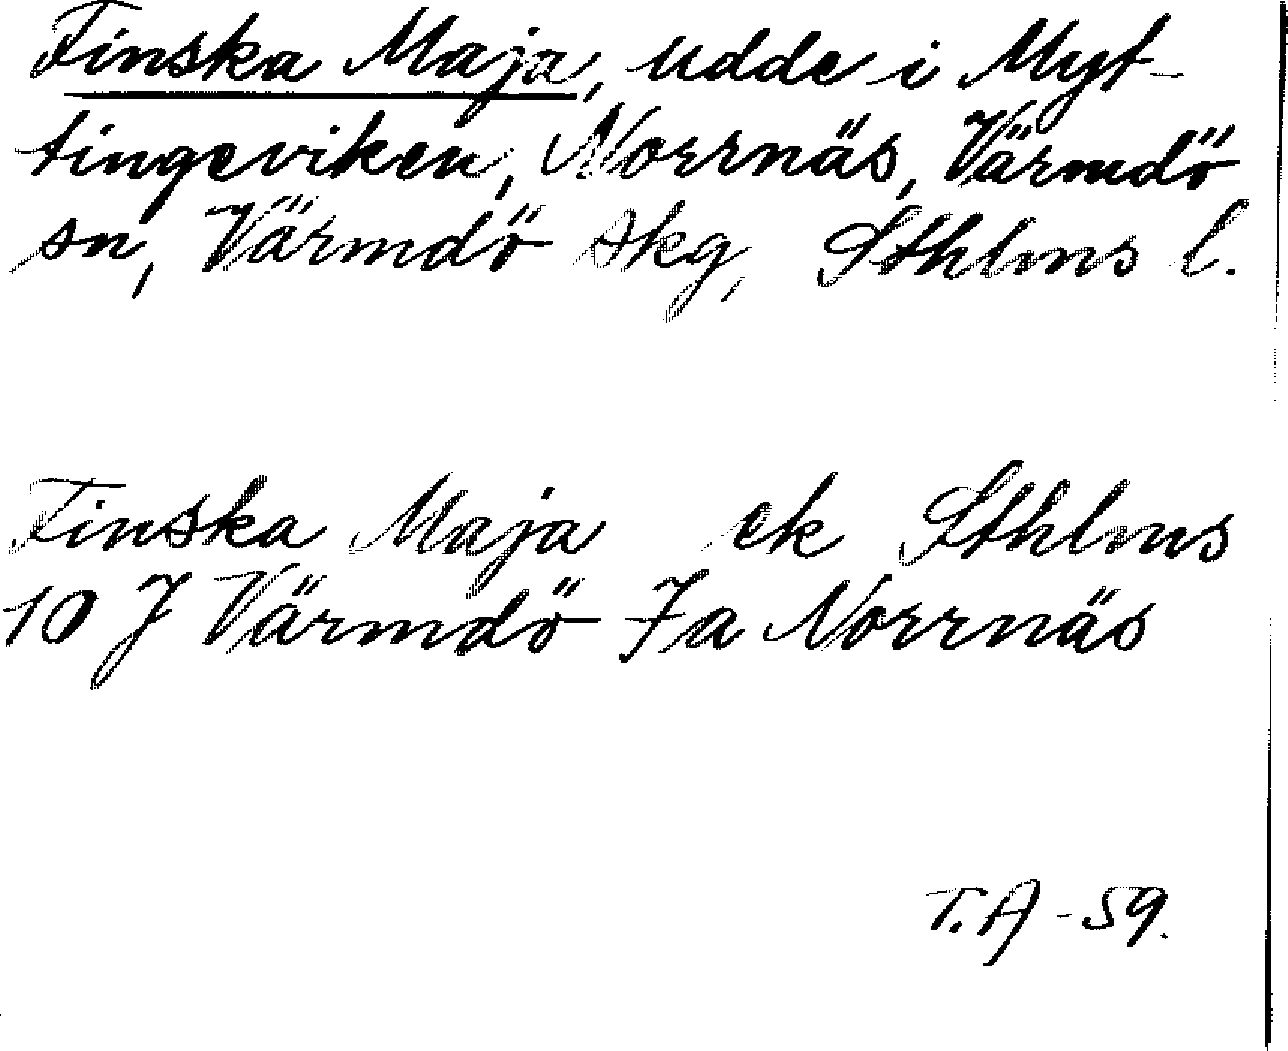 Finska Maja, udde i Myt-
tingeviken, Norrnäs, Värmdö
sn, Värmdö skg, Sthlms l.
Finska Maja ek Sthlms
10 J Värmdö Ja Norrnäs
T.A -59.